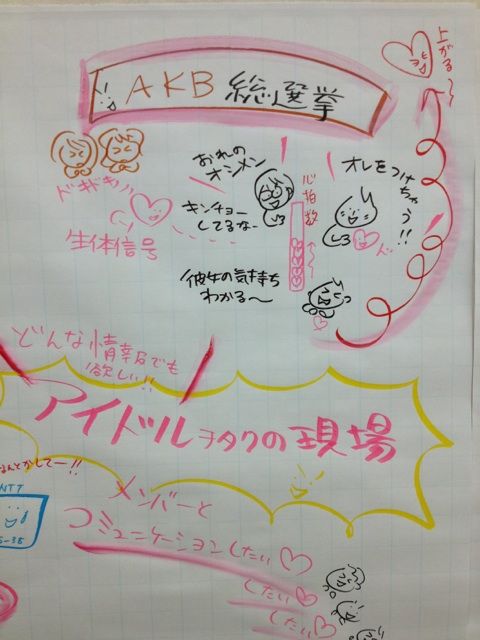 AKB 総選挙
上がる
おれの
オシメン
オレをつけちゃう!!
ドキドキ
心拍数
キンチョー
してるなー
生体信号
彼女の気持ち
わかる〜
どんな情報でも
欲しい!!
アイドルヲタクの現場
なんとかしてー!!
NTT
メンバーと
コミュニケーションしたい
したい
したい